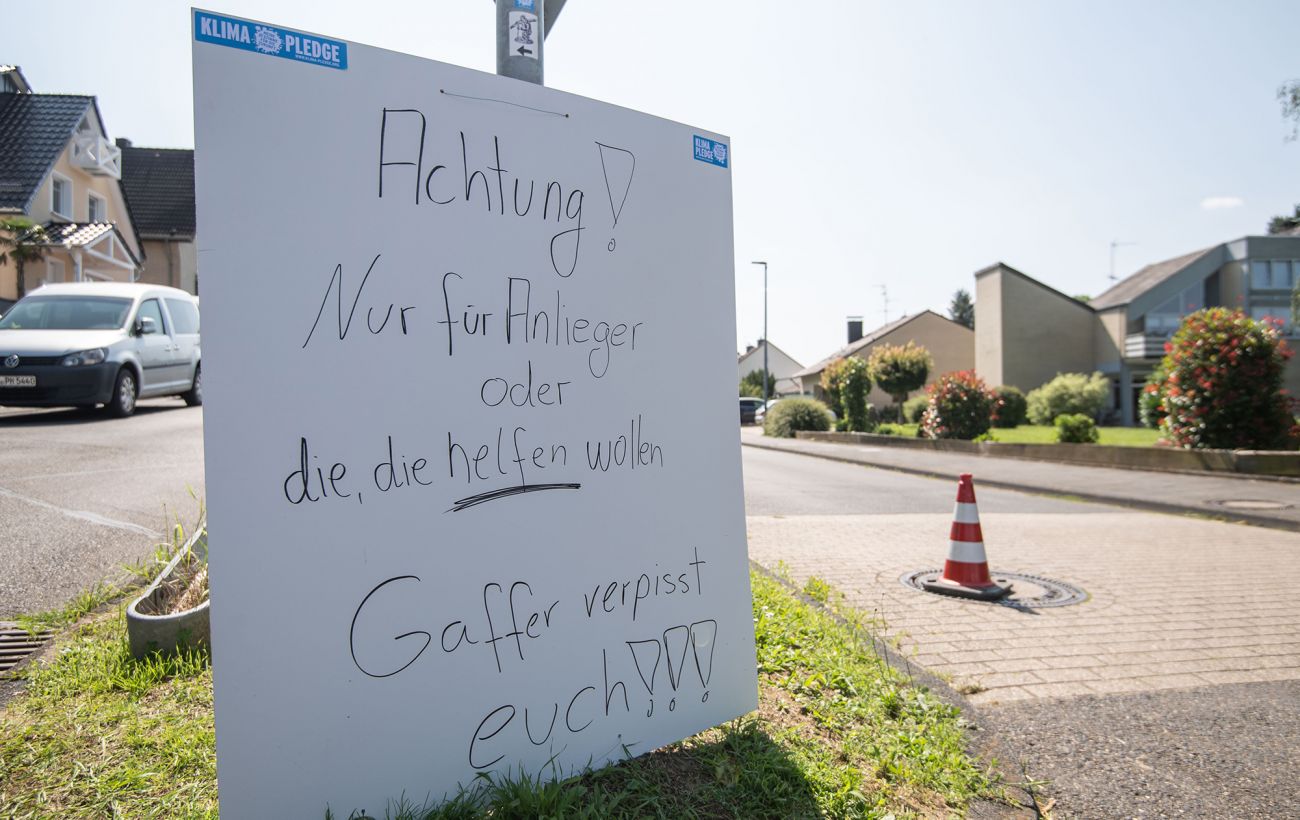 KLIMA PLEDGE
WWW.KLIMA-PLEDGE.ORG
KLIMA
PLEDGE
Achtung!
Nur für Anlieger
oder
die, die helfen wollen
Gaffer verpisst
euch!!!
PM 5440